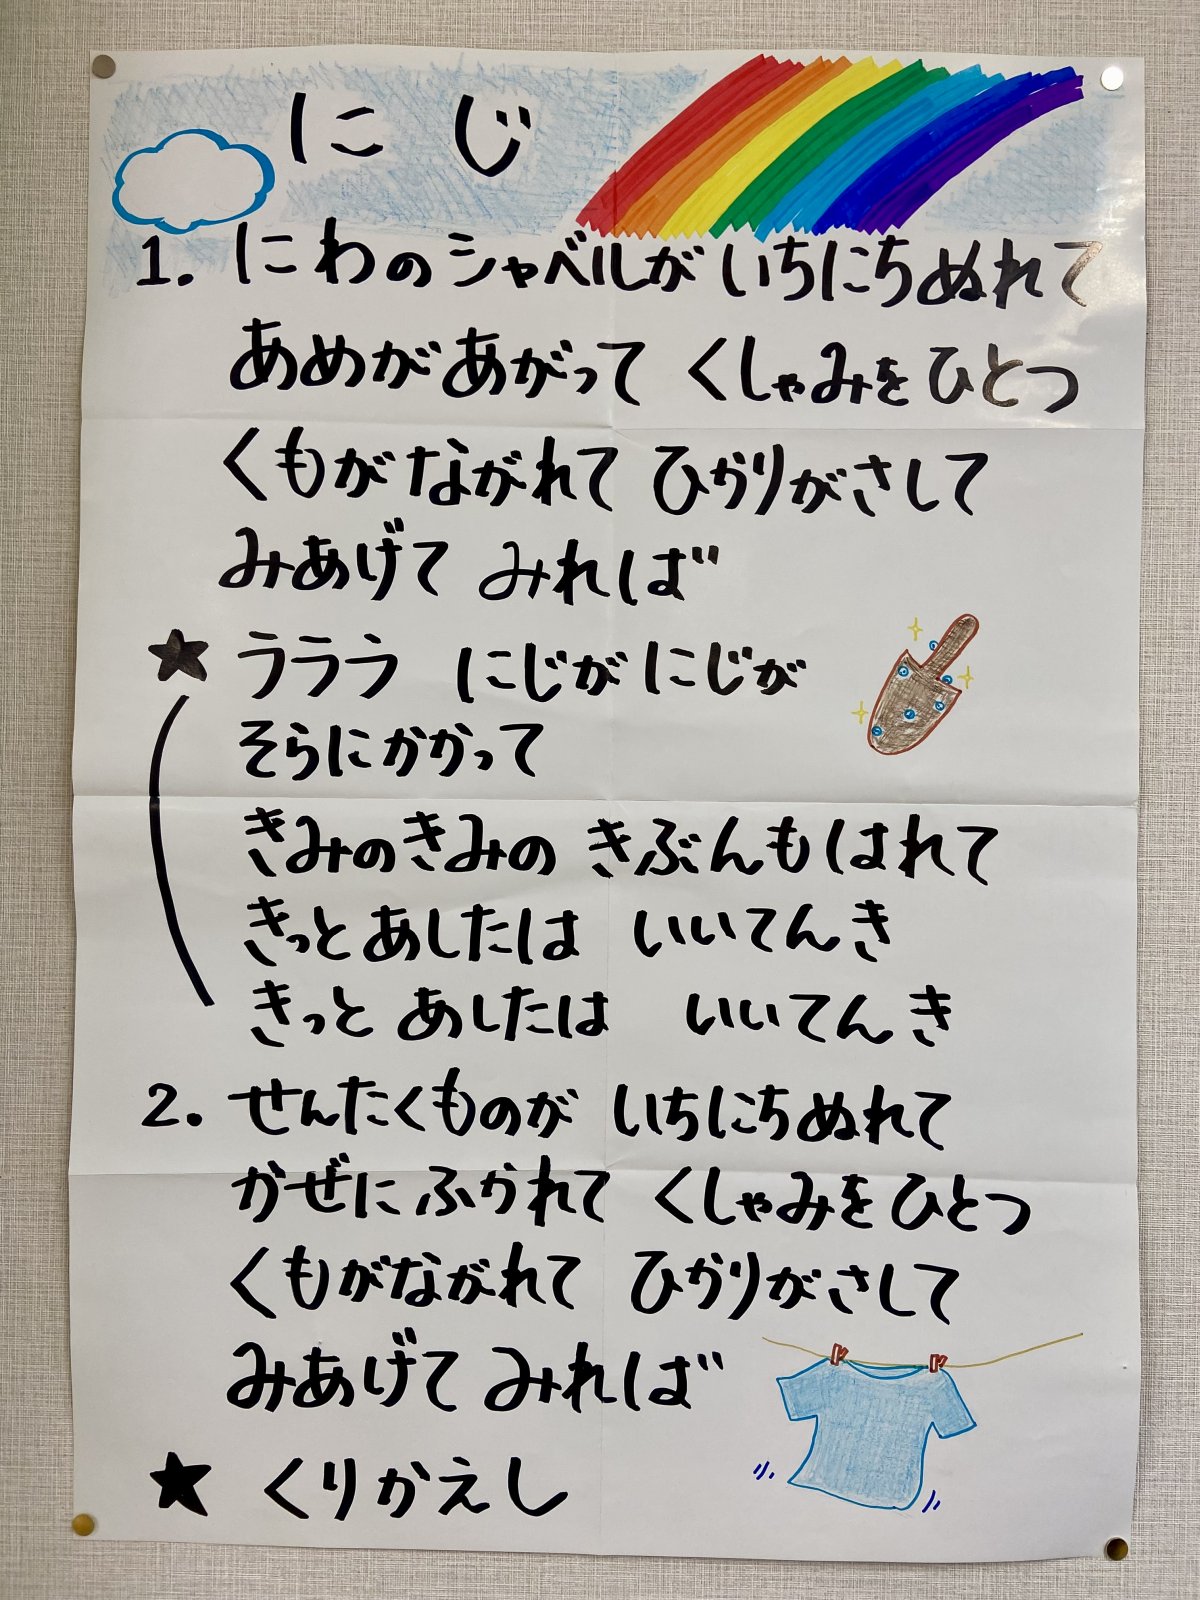 にじ
1. にわのシャベルが いちにちぬれて
あめがあがって くしゃみをひとつ
くもがながれて ひかりがさして
みあげて みれば
★ ラララ にじがにじが
そらにかかって
きみのきみの きぶんもはれて
きっとあしたは いいてんき
きっとあしたは いいてんき
2. せんたくものが いちにちぬれて
かぜにふかれて くしゃみをひとつ
くもがながれて ひかりがさして
みあげてみれば
★ くりかえし